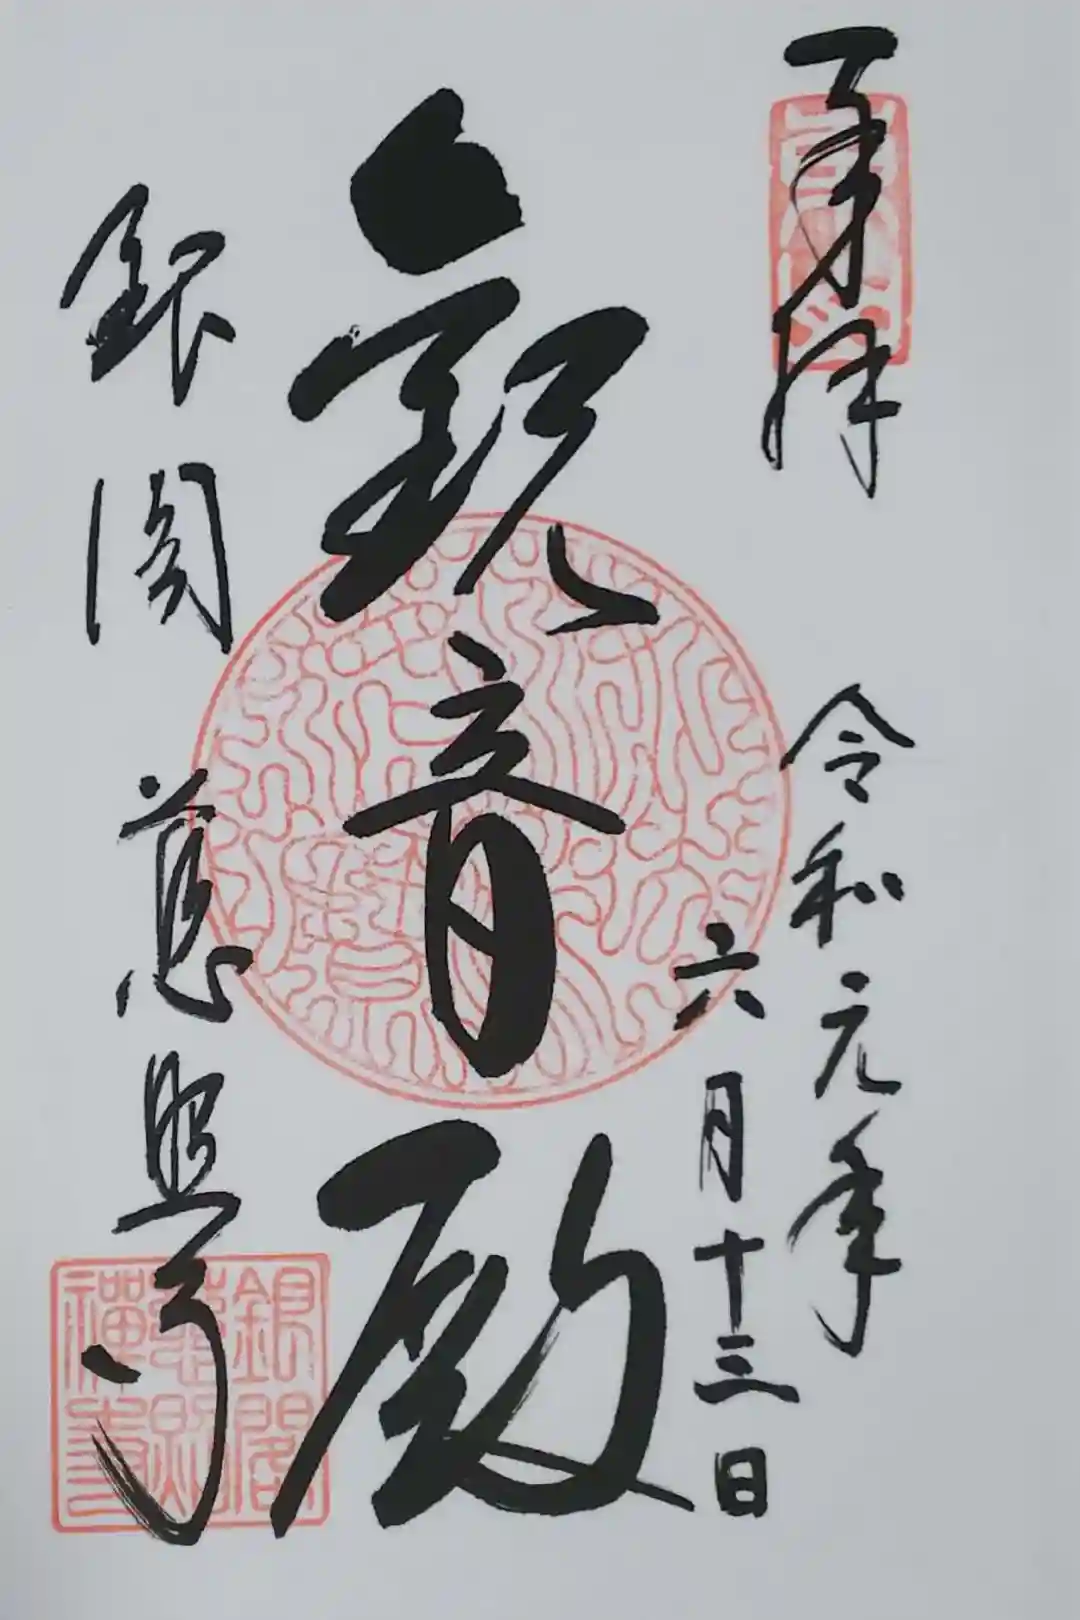 奉拝
令和元年
六月十三日
観音殿
銀閣慈照寺
銀閣
慈照
禅寺